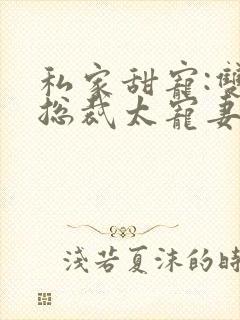 私家甜寵:雙
總裁太寵妻
淺若夏沫的時